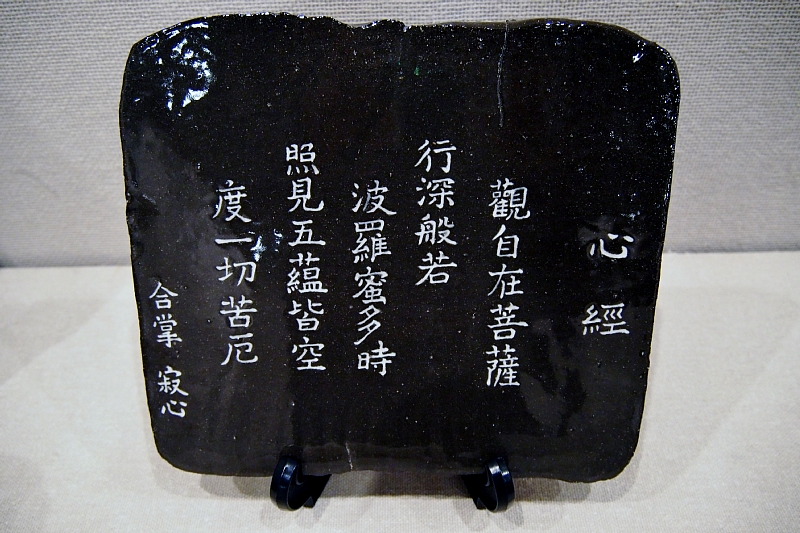 心經
觀自在菩薩
行深般若
波羅蜜多時
照見五蘊皆空
度一切苦厄
合掌 寂心